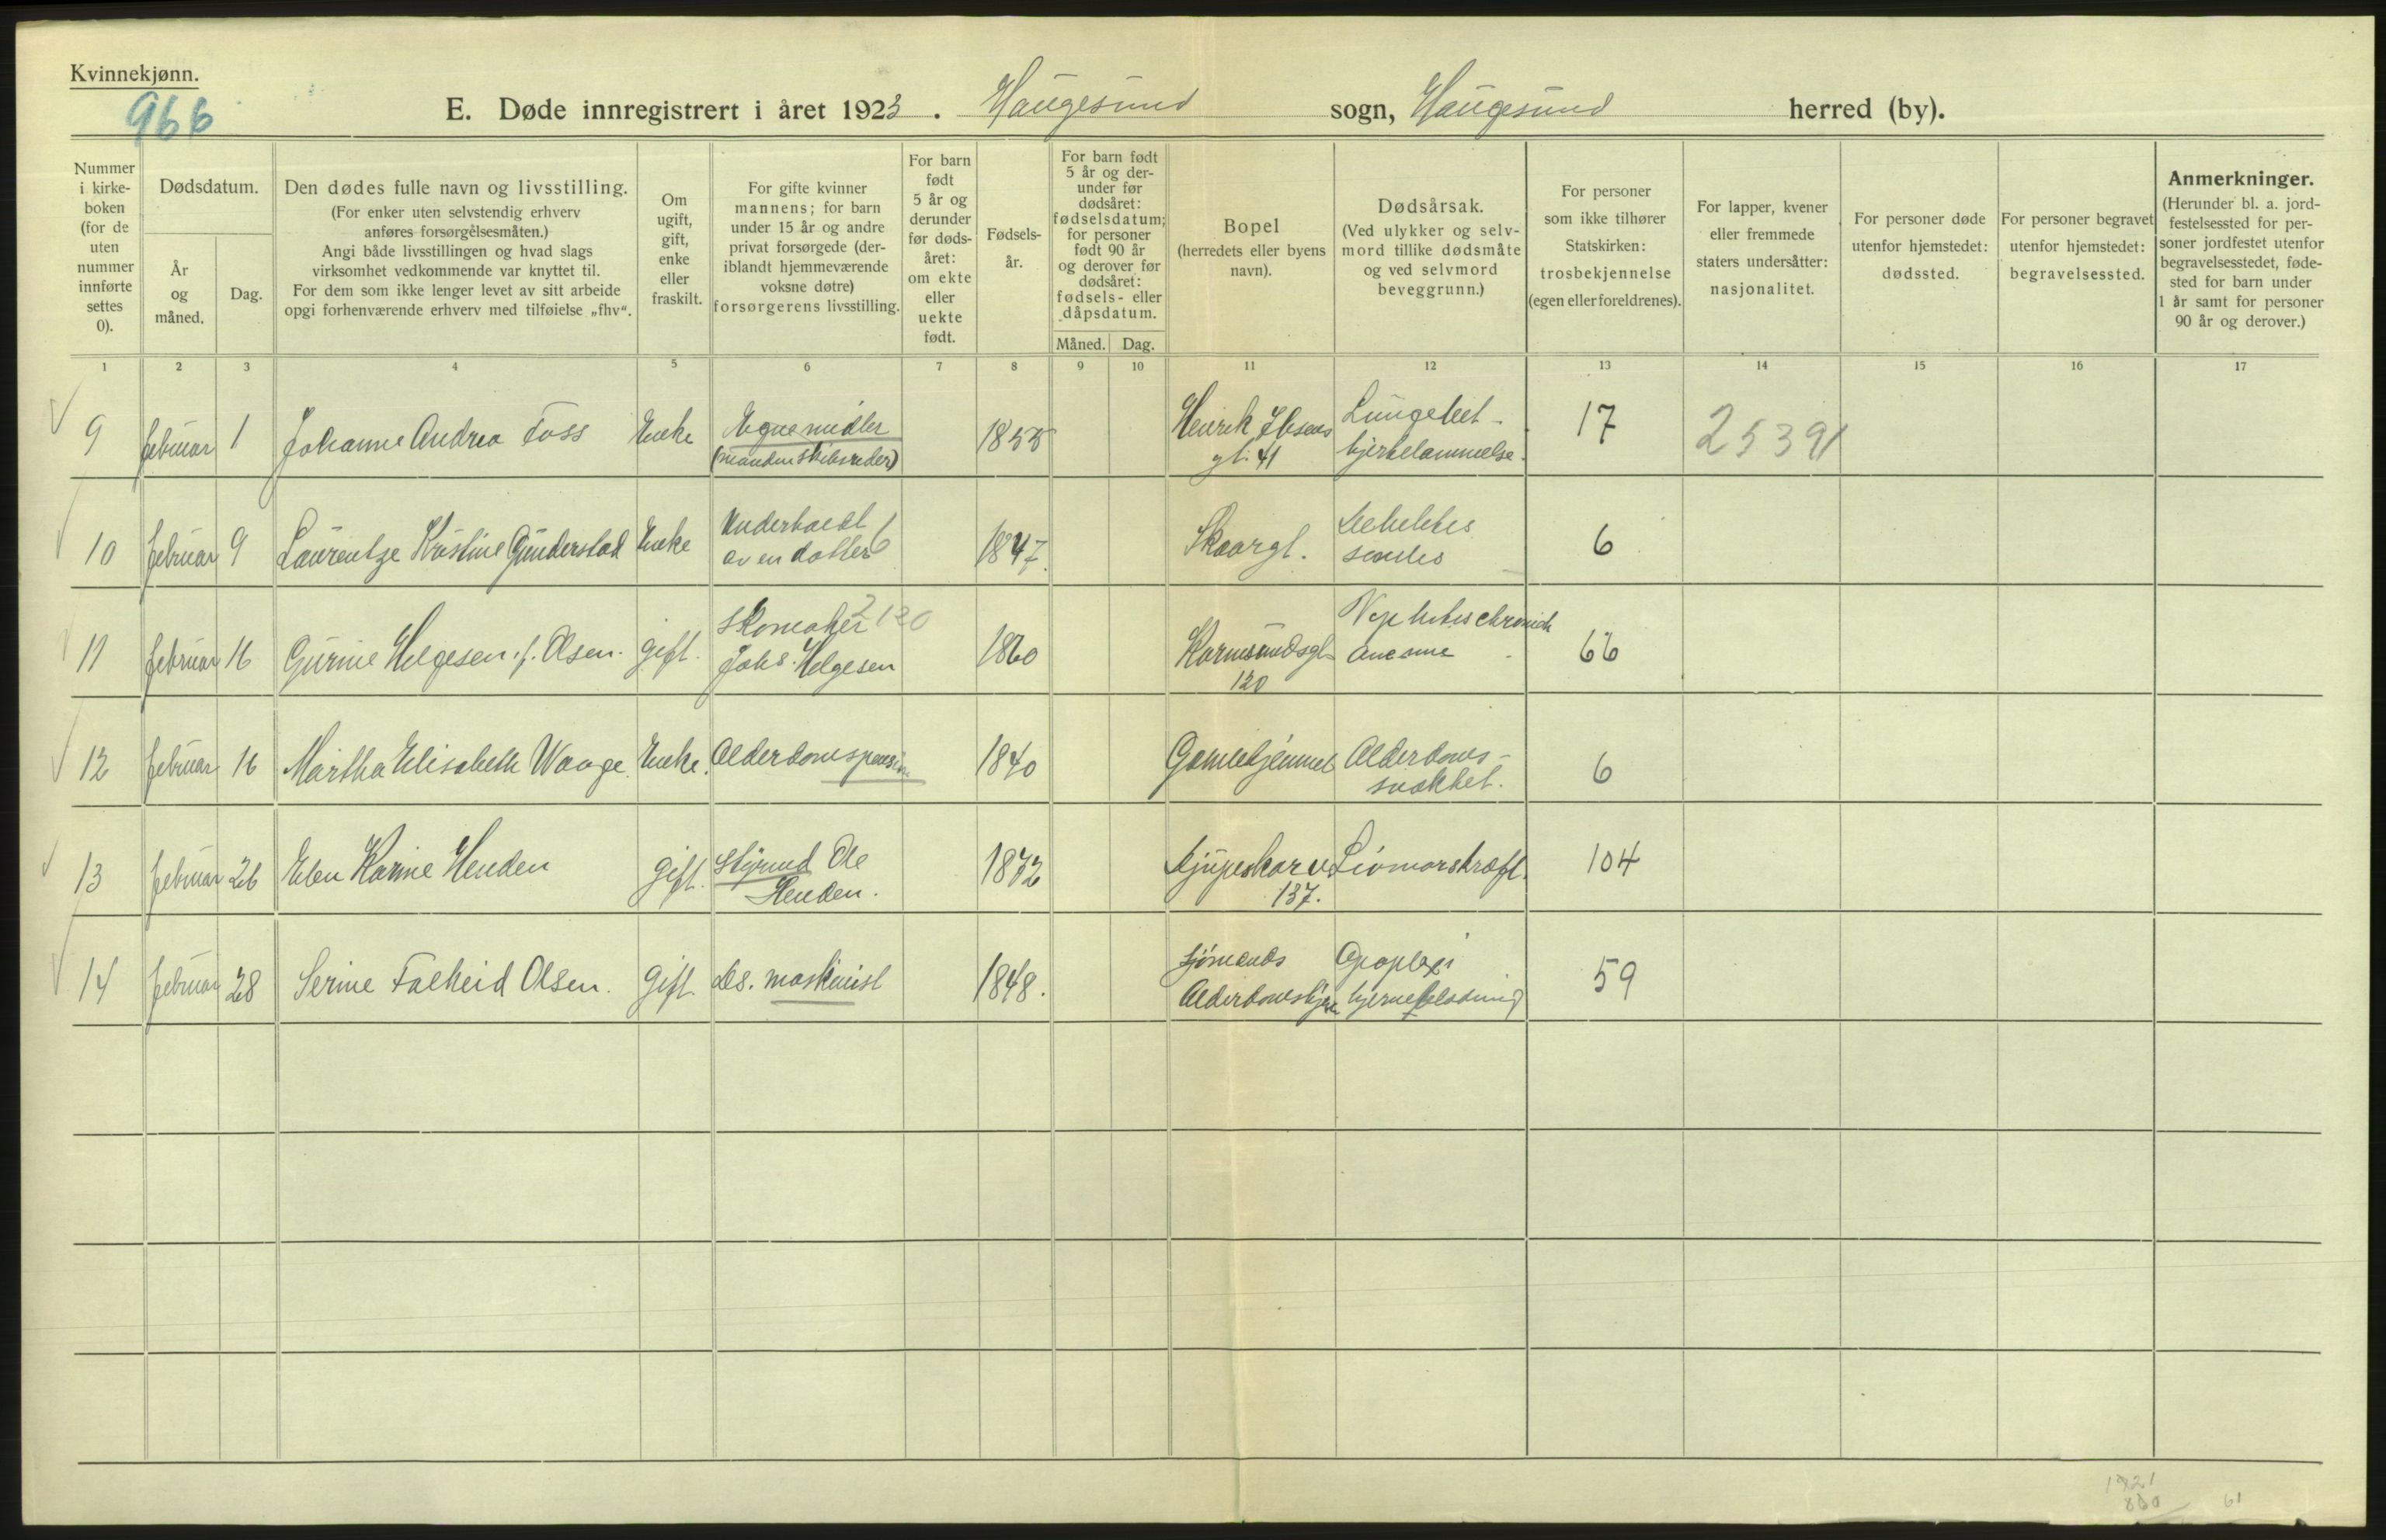 Kvinnekjønn.
966
E. Døde innregistrert i året 1923. Haugesund sogn, Haugesund herred (by).
Nummer i kirkeboken (for de uten nummer innførte settes 0).
Dødsdatum.
År og måned.
Dag.
Den dødes fulle navn og livsstilling.
(For enker uten selvstendig erhverv anføres forsørgelsesmåten.)
Angi både livsstillingen og hvad slags virksomhet vedkommende var knyttet til.
For dem som ikke lenger levet av sitt arbeide opgi forhenværende erhverv med tilføielse „fhv“.
Om ugift, gift, enke eller fraskilt.
For gifte kvinner mannens; for barn under 15 år og andre privat forsørgede (deriblandt hjemmeværende voksne døtre) forsørgerens livsstilling.
For barn født 5 år og derunder før dødsåret: om ekte eller uekte født.
Fødselsår.
For barn født 5 år og derunder før dødsåret: fødselsdatum; for personer født 90 år og derover før dødsåret: fødsels- eller dåpsdatum.
Måned. Dag.
Bopel (herredets eller byens navn).
Dødsårsak.
(Ved ulykker og selvmord tillike dødsmåte og ved selvmord beveggrunn.)
For personer som ikke tilhører Statskirken: trosbekjennelse (egen eller foreldrenes).
For lapper, kvener eller fremmede staters undersåtter: nasjonalitet.
For personer døde utenfor hjemstedet: dødssted.
For personer begravet utenfor hjemstedet: begravelsessted.
Anmerkninger.
(Herunder bl. a. jordfestelsessted for personer jordfestet utenfor begravelsesstedet, fødested for barn under 1 år samt for personer 90 år og derover.)
1 2 3 4 5 6 7 8 9 10 11 12 13 14 15 16 17
9 februar 1 Johanne Andrea Foss Enke Egne midler (manden skibsreder) 1855 Henrik Ibsens gt. 41 Lungebet- hjertelammelse. 17 25391
10 februar 9 Laurentze Kristine Gunderstad Enke Underholdt av en datter 6 1847. Skaargt. senilis 6
11 februar 16 Gurine Helgesen f. Olsen. gift. Skomaker Johs. Helgesen 2120 1860 Karmsundsgt. 120 chronich 66
12 februar 16 Martha Elisabeth Waage. Enke. Alderdomspension 1840 Gamlehjemmet Alderdoms- svakhet. 6
13 februar 26 Elen Karine Henden gift. Styrmd Ole Henden. 1872 137. Livmorskræft. 104
14 februar 28 Serine Falkeid Olsen. gift. Ds. maskinist 1848. Sjømands Alderdomshjem Apoplexi hjerneblødning 59
1921
800
61